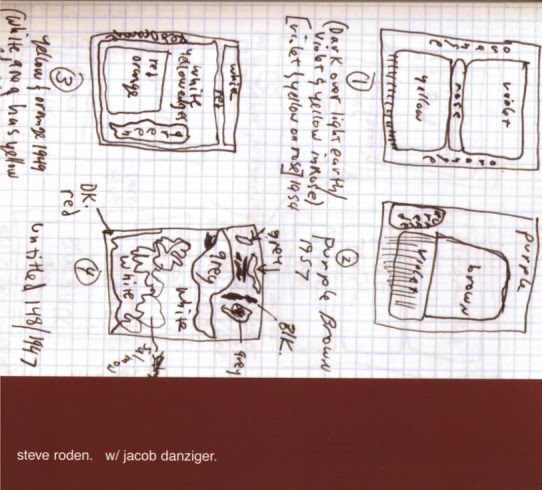 orange
violet
rose
yellow
orange
①
(Dark over light earth/
Violet & yellow in Rose)
[violet & yellow on rose] 1954
purple
brown
②
Purple Brown
1957
white
red
Red orange
white
orange
green
③
yellow & orange 1949
grey
BLK.
grey
grey
white
white
④
DK.
red
untitled 148/1947
steve roden. w/ jacob danziger.